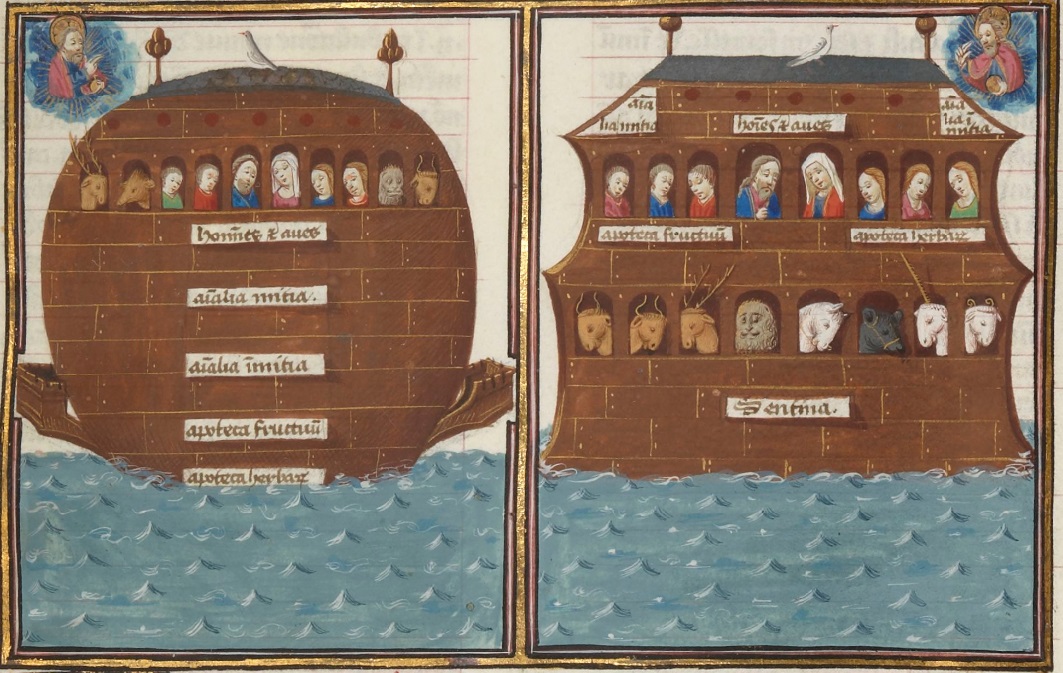 homīes ⁊ aues
aīalia mitia.
aīalia īmitia
apoteca fructuū
apoteca herbaꝝ
aīa
lia mitia
hoīes ⁊ aues
aīa
lia ī
mitia
apoteca fructuū
apoteca herbaꝝ
Sentina.